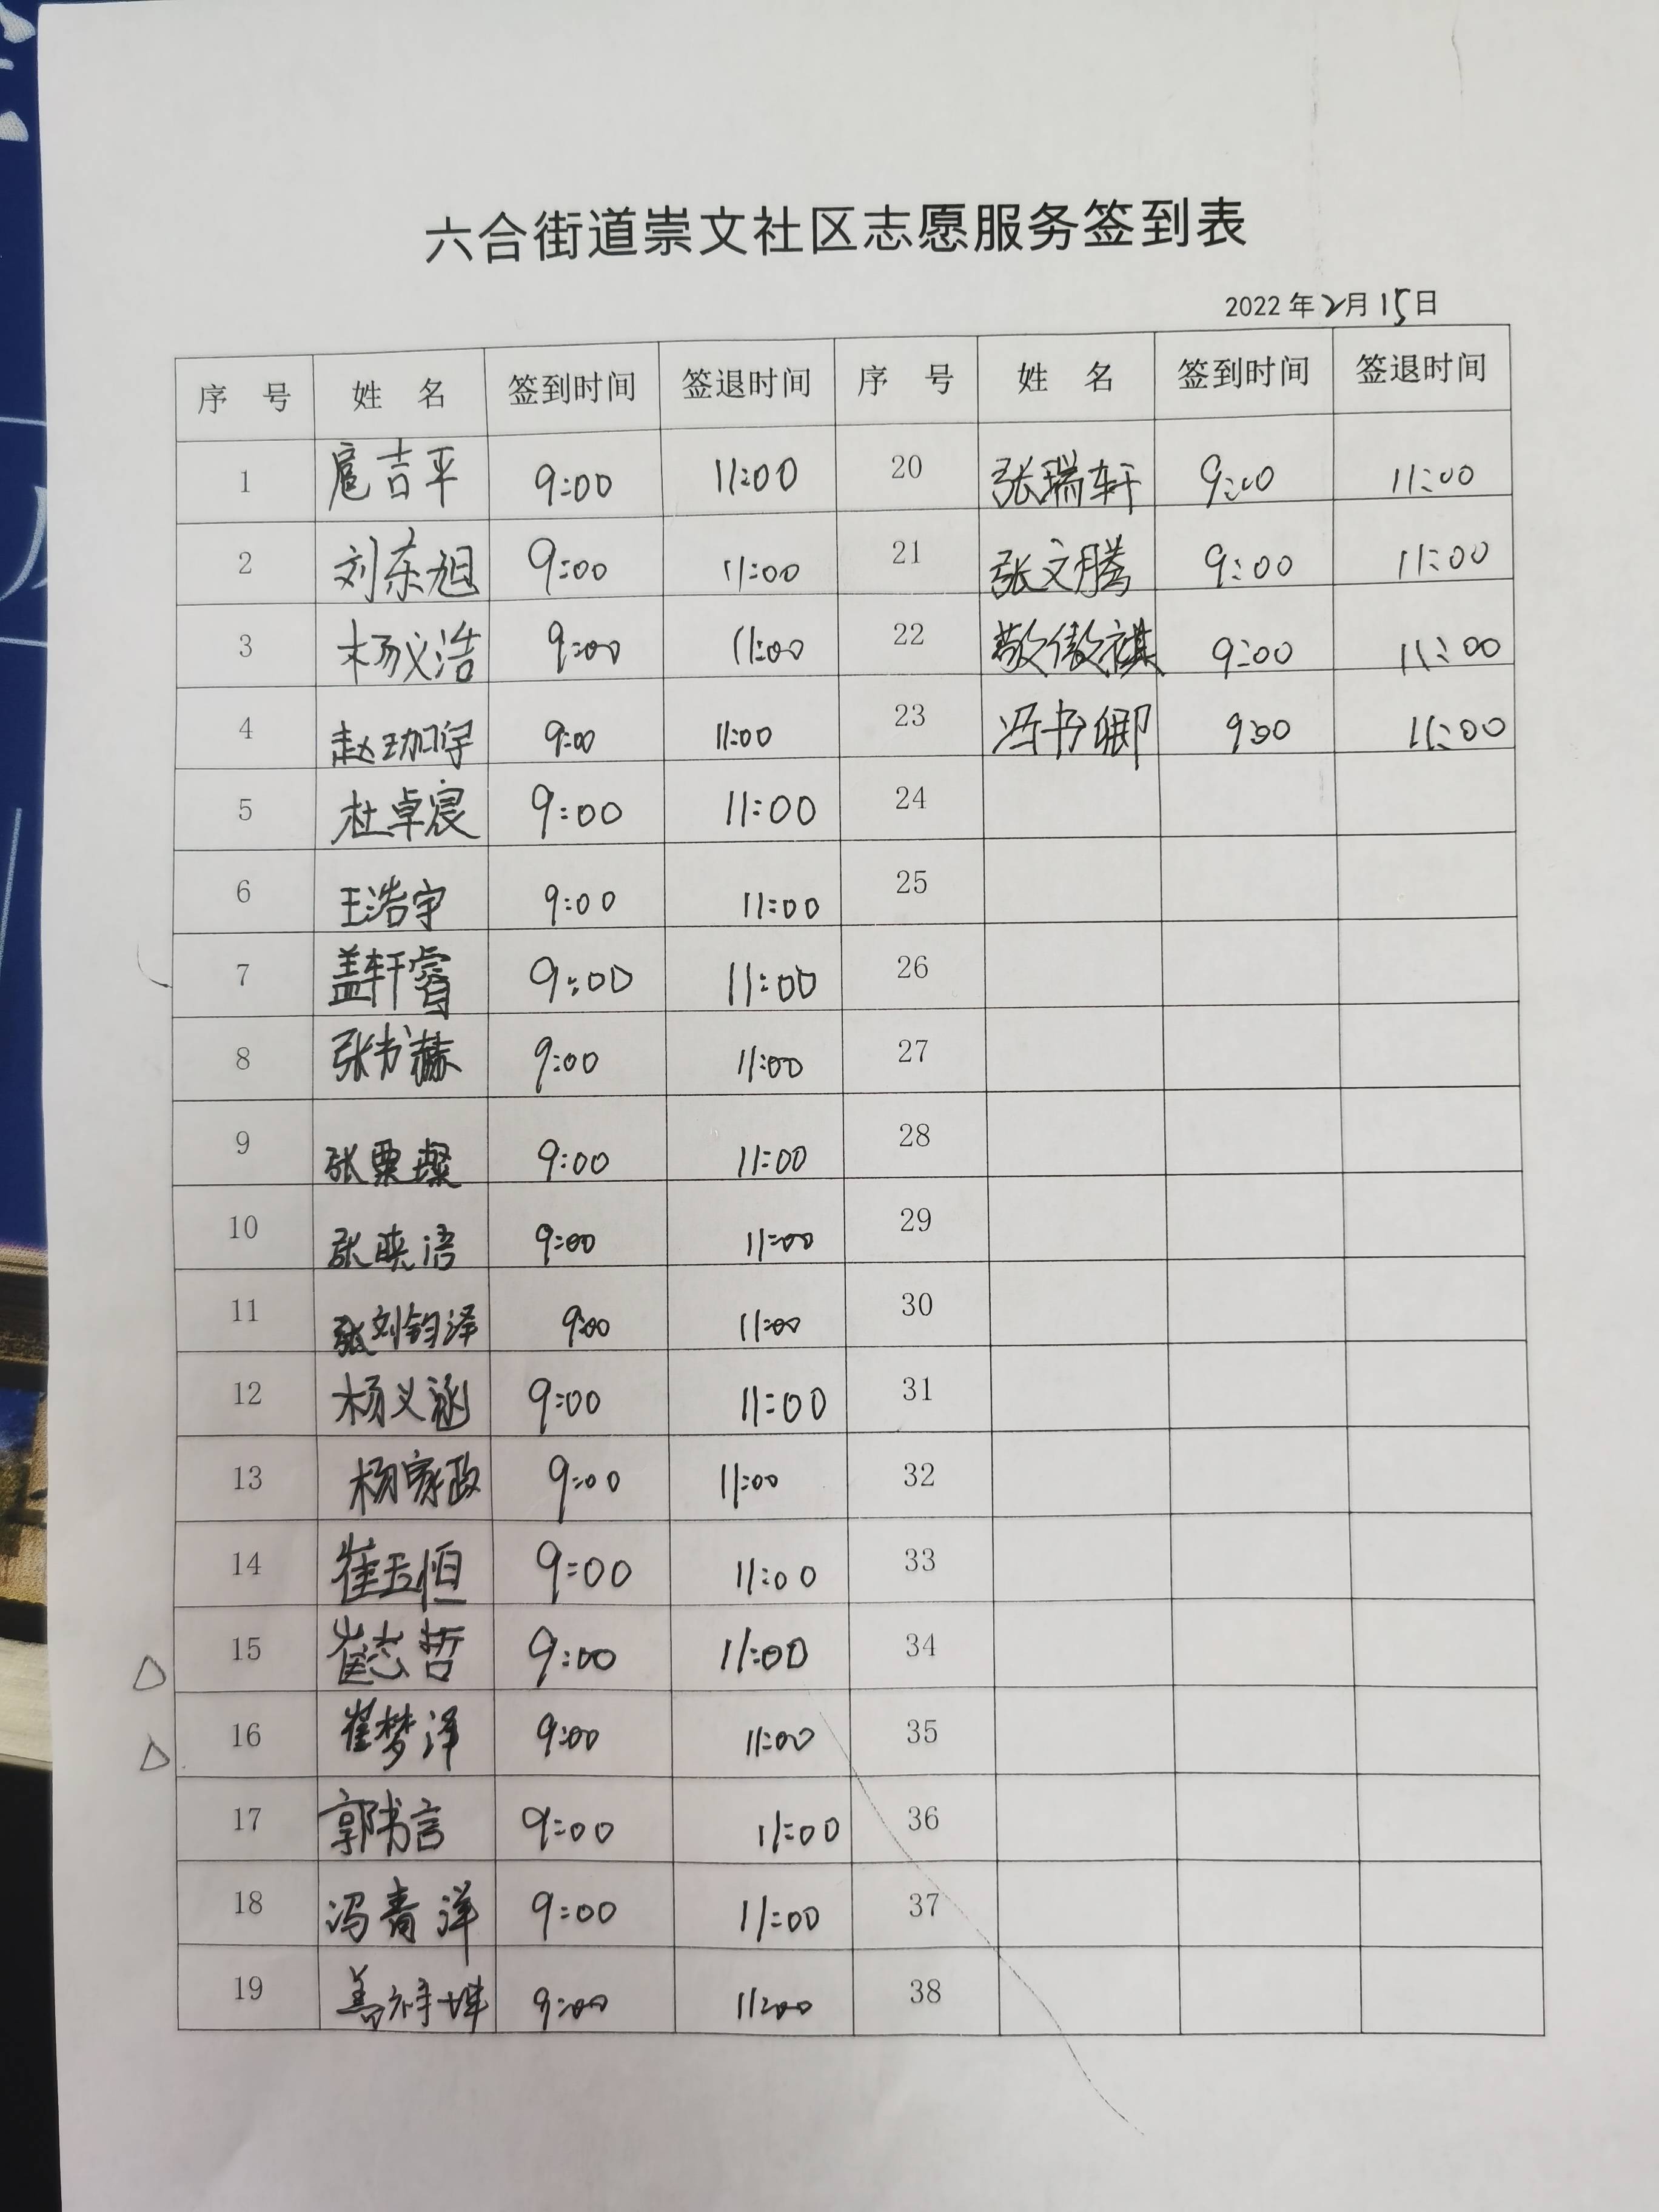 六合街道崇文社区志愿服务签到表
2022年2月15日
序 号 姓 名 签到时间 签退时间 序 号 姓 名 签到时间 签退时间
1 扈吉平 9:00 11:00 20 张瑞轩 9:00 11:00
2 刘东旭 9:00 11:00 21 张文腾 9:00 11:00
3 杨义浩 9:00 11:00 22 敬傲祺 9:00 11:00
4 赵珈宇 9:00 11:00 23 冯书卿 9:00 11:00
5 杜卓宸 9:00 11:00 24
6 王浩宇 9:00 11:00 25
7 盖轩睿 9:00 11:00 26
8 张书赫 9:00 11:00 27
9 张粟璨 9:00 11:00 28
10 张映语 9:00 11:00 29
11 张刘钧泽 9:00 11:00 30
12 杨义涵 9:00 11:00 31
13 杨家政 9:00 11:00 32
14 崔玉恒 9:00 11:00 33
15 崔志哲 9:00 11:00 34
16 崔梦泽 9:00 11:00 35
17 郭书言 9:00 11:00 36
18 冯青洋 9:00 11:00 37
19 9:00 11:00 38